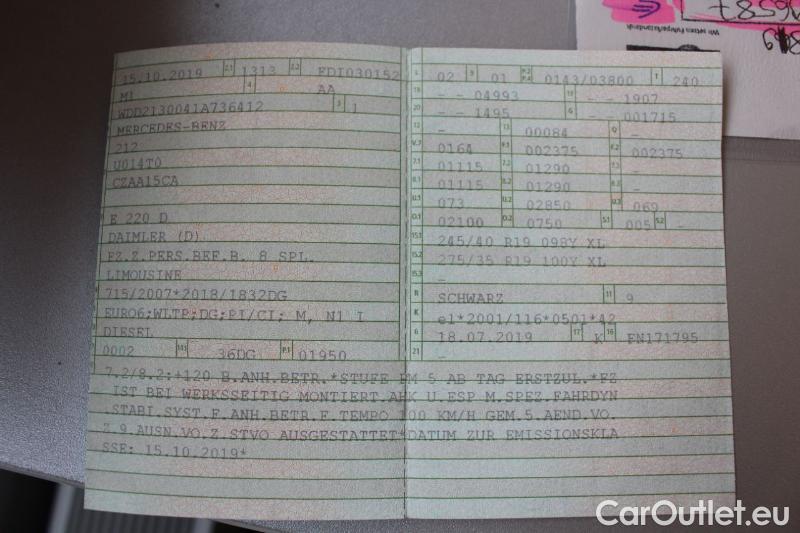 15.10.2019 2.1 1313 2.2 FDI030152
M1 4 AA
WDD2130041A736412 3 1
MERCEDES-BENZ
212
U014T0
CZAA15CA
E 220 D
DAIMLER (D)
FZ.Z.PERS.BEF.B. 8 SPL.
LIMOUSINE
715/2007*2018/1832DG
EURO6;WLTP;DG;PI/CI; M, N1 I
DIESEL
0002 14.1 36DG P.1 01950
L 02 9 01 P.2 P.4 0143/03800 T 240
18 - - 04993 19 - - 1907
20 - - 1495 G - - 001715
12 - 13 00084 Q -
V.7 0164 F.1 002375 F.2 002375
7.1 01115 7.2 01290 7.3 -
8.1 01115 8.2 01290 8.3 -
U.1 073 U.2 02850 U.3 069
O.1 02100 O.2 0750 S.1 005 S.2 -
15.1 245/40 R19 098Y XL
15.2 275/35 R19 100Y XL
15.3 -
R SCHWARZ 11 9
K e1*2001/116*0501*42
6 18.07.2019 17 K 16 FN171795
21 -
7.2/8.2:+120 B.ANH.BETR.*STUFE PM 5 AB TAG ERSTZUL.*FZ
IST BEI WERKSSEITIG MONTIERT.AHK U.ESP M.SPEZ.FAHRDYN
.STABI.SYST.F.ANH.BETR.F.TEMPO 100 KM/H GEM.5.AEND.VO.
Z.9.AUSN.VO.Z.STVO AUSGESTATTET*DATUM ZUR EMISSIONSKLA
SSE: 15.10.2019*
CarOutlet.eu